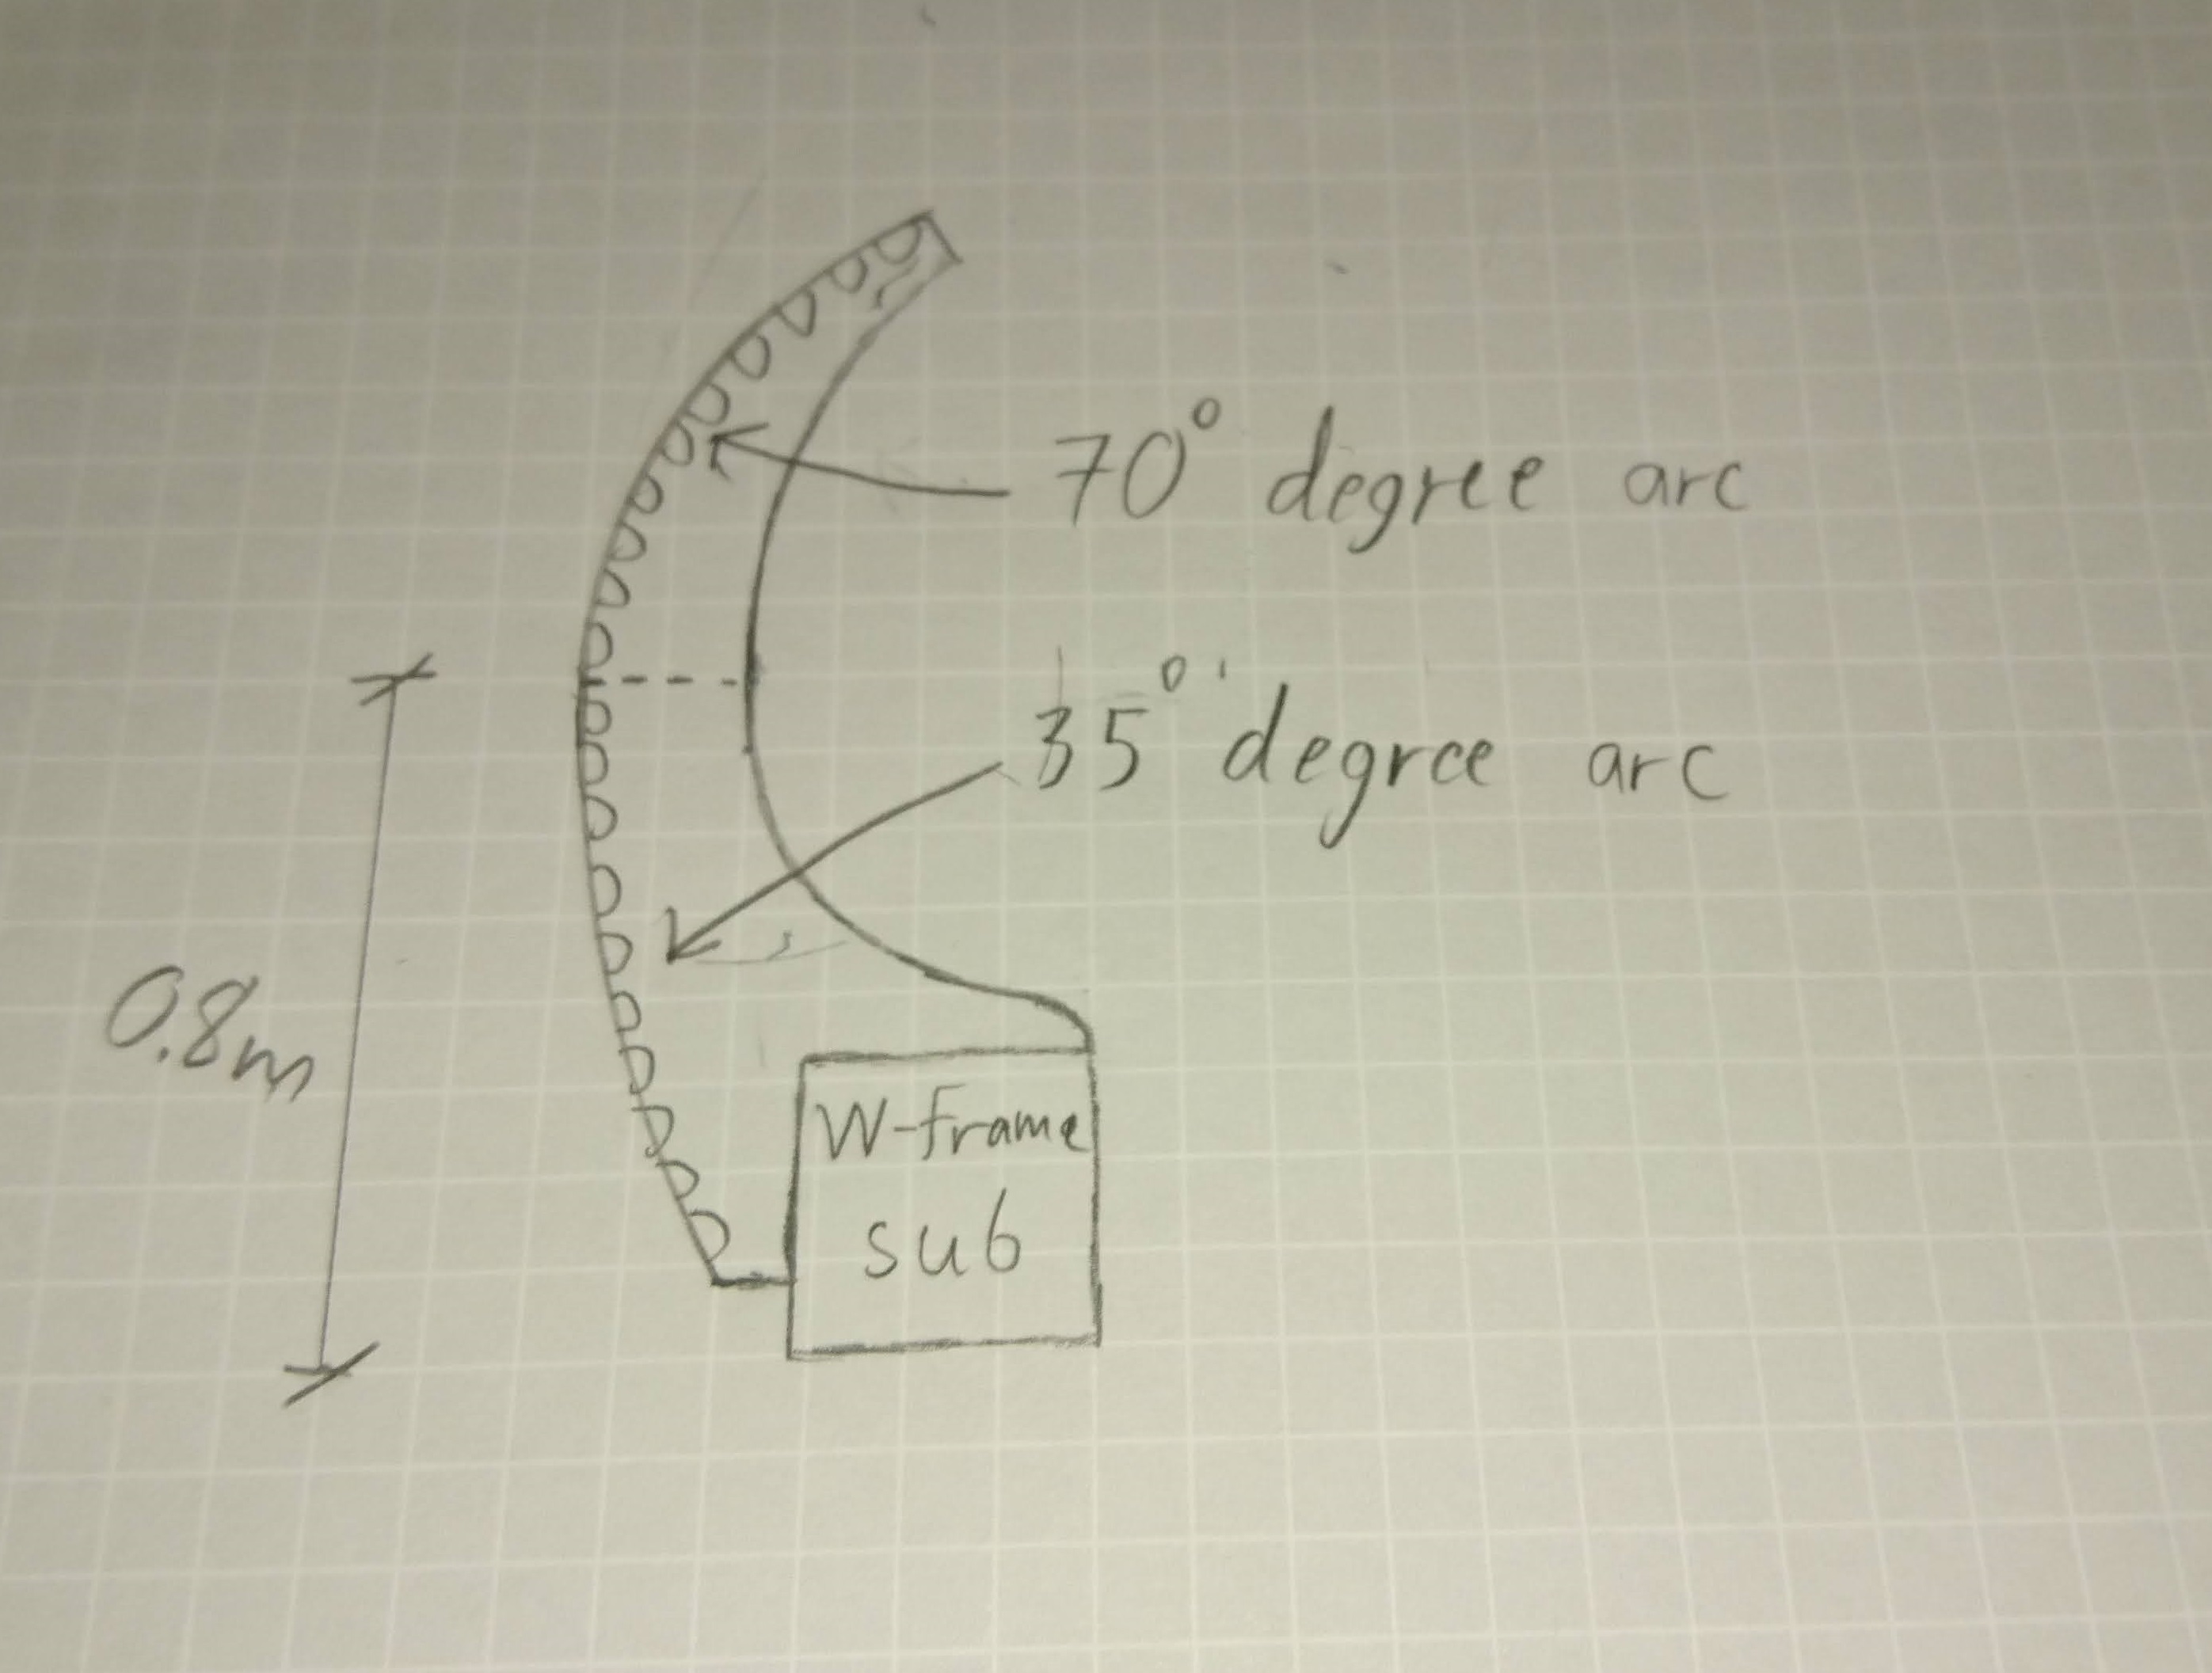 70° degree arc
35° degree arc
0.8m
W-frame
sub